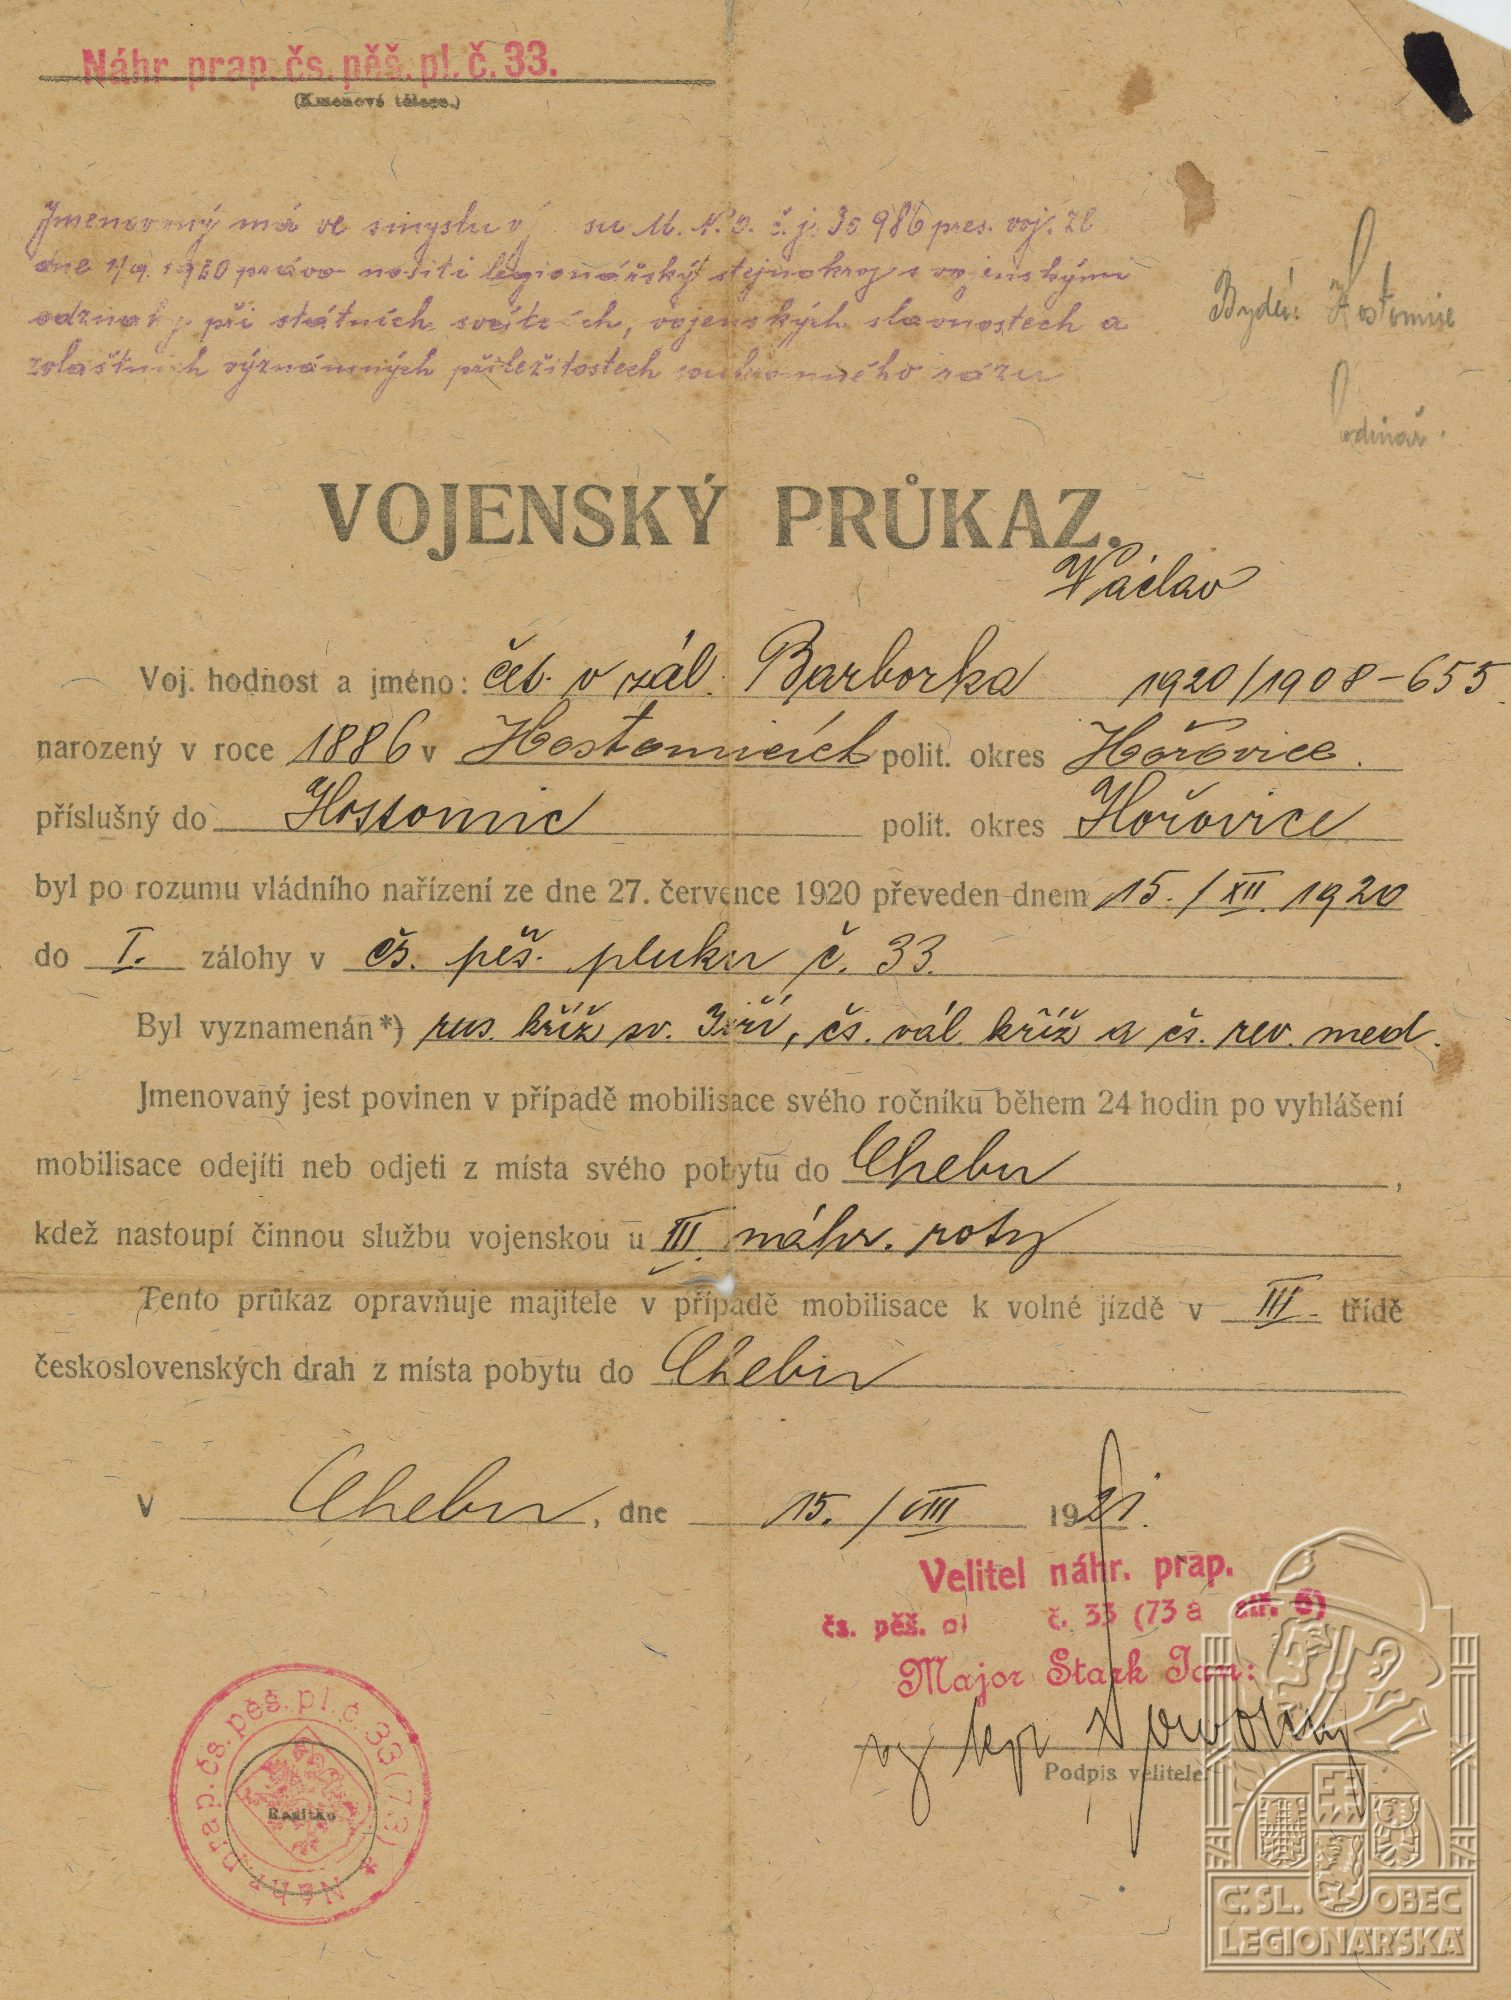 Náhr. prap. čs. pěš. pl. č. 33.
(Kmenové těleso.)
Jmenovaný má ve smyslu su M. N. O. č. j. 30986 pres. voj. zl
dne 1920 právo nositi legionářský stejnokroj s vojenskými
odznaky při státních svátcích, vojenských slavnostech a
zvlaštních význámných příležitostech soukromného rázu
Bydlí: Hostomice
VOJENSKÝ PRŮKAZ.
Václav
Voj. hodnost a jméno: čet. v zál. Barborka 1920/1908-655
narozený v roce 1886 v Hostomicích polit. okres Hořovice.
příslušný do Hostomic polit. okres Hořovice
byl po rozumu vládního nařízení ze dne 27. července 1920 převeden dnem 15./XII. 1920
do I. zálohy v čs. pěš. pluku č. 33.
Byl vyznamenán*) rus. kříž sv. Jiří, čs. vál. kříž a čs. rev. med.
Jmenovaný jest povinen v případě mobilisace svého ročníku během 24 hodin po vyhlášení
mobilisace odejíti neb odjeti z místa svého pobytu do Chebu,
kdež nastoupí činnou službu vojenskou u III. náhr. roty
Tento průkaz opravňuje majitele v případě mobilisace k volné jízdě v III. třídě
československých drah z místa pobytu do Chebu
V Chebu, dne 15./VIII 1921.
Velitel náhr. prap.
čs. pěš. pl č. 33 (73 a stř. 6)
Major Stark Jan:
Podpis velitele.
Náhr. prap. čs. pěš. pl. č. 33 (73)
Razítko
Č. SL. OBEC
LEGIONÁŘSKÁ